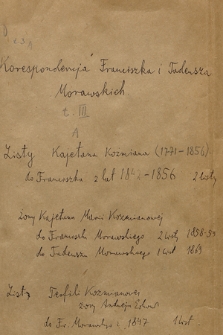 Korespondencja Franciszka i Tadeusza
Morawskich
t. III
A
Listy Kajetana Koźmiana (1771-1856)
do Franciszka z lat 1842-1856 2 listy
żony Kajetana Marii Koźmianowej
do Franciszka Morawskiego 2 listy 1856-57
do Tadeusza Morawskiego 1 list 1869
Listy Teofili Koźmianowej
żony Andrzeja Edw.
do Fr. Morawskiego 1847 1 list